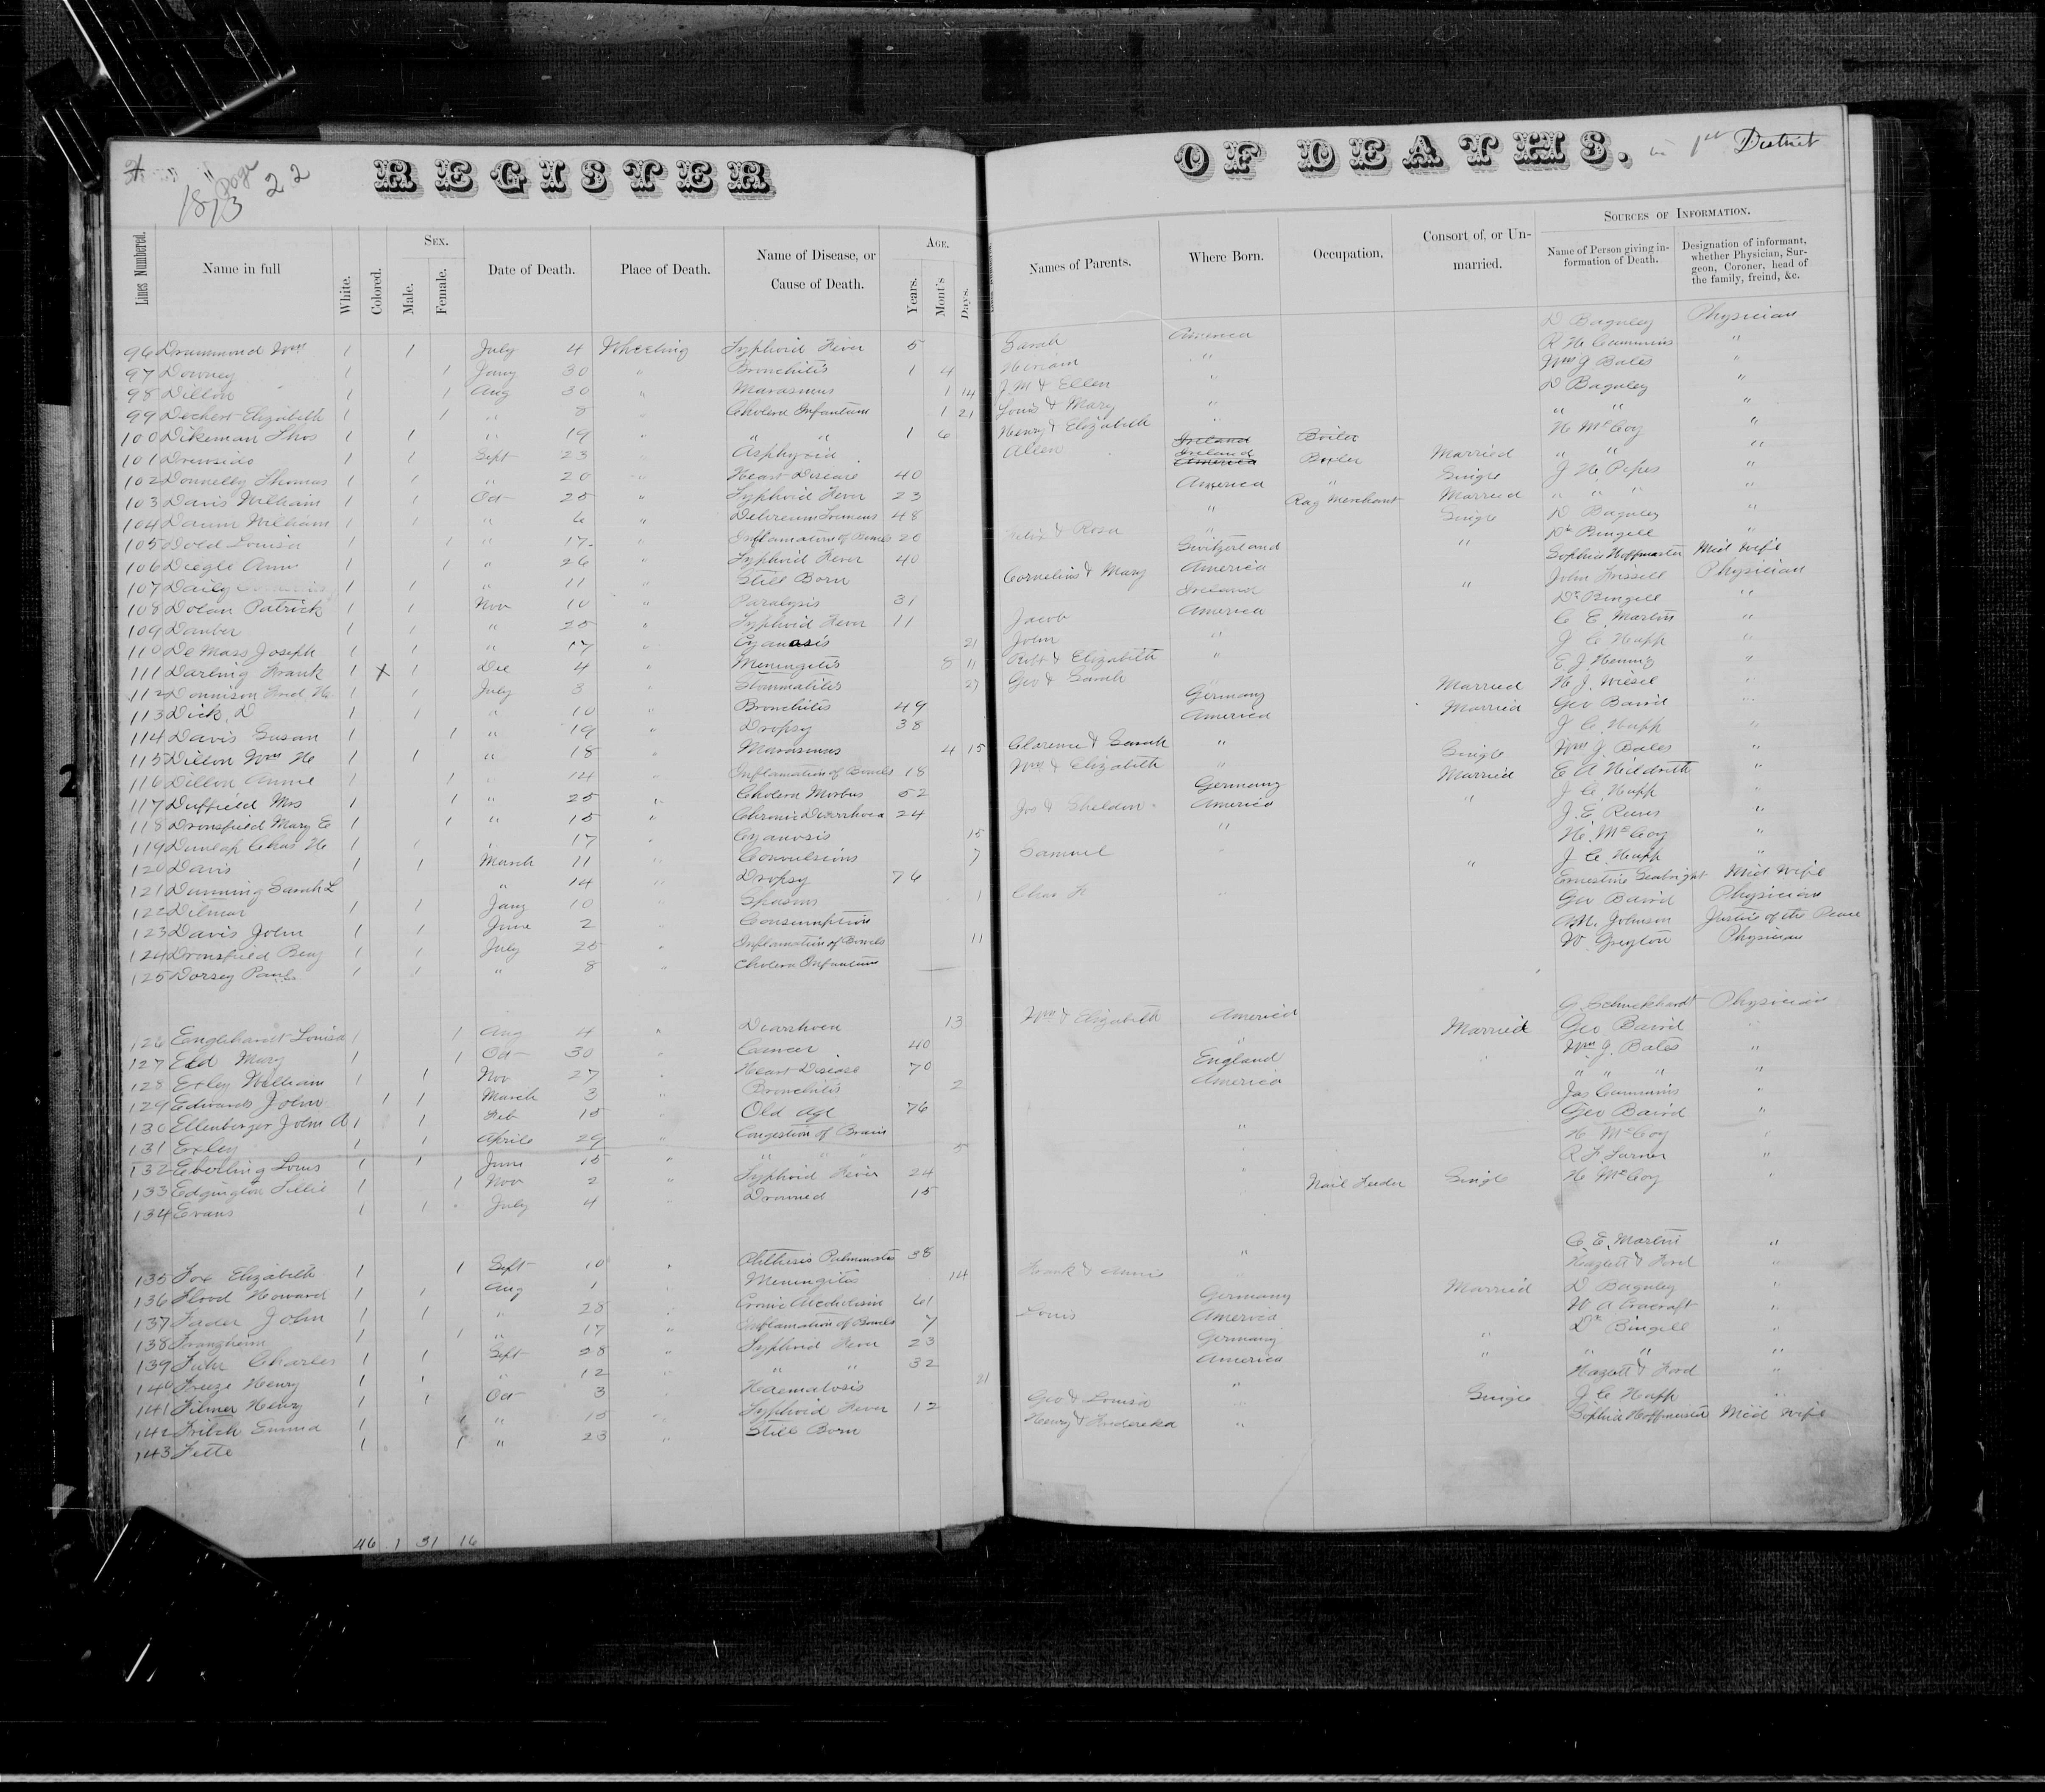 1873 Page 22
REGISTER OF DEATHS. in 1st District
Lines Numbered. Name in full White. Colored. Sex. Male. Female. Date of Death. Place of Death. Name of Disease, or Cause of Death. Age. Years. Mont's Days. Names of Parents. Where Born. Occupation. Consort of, or Unmarried. Sources of Information. Name of Person giving information of Death. Designation of informant, whether Physician, Surgeon, Coroner, head of the family, freind, &c.
96 Drummond Wm 1 1 July 4 Wheeling Typhoid Fever 5 Sarah America D Baguley Physician
97 Downey 1 1 Jany 30 " Bronchitis 1 4 Hiriam " R H Cummins "
98 Dillon 1 1 Aug 30 " Marasmus 1 14 J. M & Ellen " Wm J Bates "
99 Dechert Elizabeth 1 1 " 8 " Cholera Infantum 1 21 Louis & Mary " D Baguley "
100 Dikeman Thos 1 1 " 19 " " " 1 6 Henry & Elizabeth " " " "
101 1 1 Sept 23 " Asphyxia Allen H McCoy "
102 Donnelly Thomas 1 1 " 20 " Heart Disease 40 Ireland Boiler Married " " "
103 Davis William 1 1 Oct 25 " Typhoid Fever 23 America " Single J H Pipes "
104 Daum William 1 1 " 6 " Delirium Tremens 48 " Rag Merchant Married " " " "
105 Dold Louisa 1 1 " 17 " Inflamation of Bowels 20 Felix & Rosa " Single D Baguley "
106 Diegle Ann 1 1 " 26 " Typhoid Fever 40 Switzerland Dr Bingell "
107 Daily 1 1 " 11 " Still Born Cornelius & Mary America " Sophia Hoffmaster Mid Wife
108 Dolan Patrick 1 1 Nov 10 " Paralysis 31 Ireland John Frissell Physician
109 Dauber 1 1 " 25 " Typhoid Fever 11 Jacob America " Dr Bingell "
110 De Mass Joseph 1 1 " 17 " Cyanosis 21 John " C E Martin "
111 Darling Frank 1 X 1 Dec 4 " Meningetis 8 11 Robt & Elizabeth " J C Hupp "
112 Dennison Fred H 1 1 July 3 " Stommatites 27 Geo & Sarah " E. J. Henniz "
113 Dick, D 1 1 " 10 " Bronchitis 49 Germany Married H J Wiesel "
114 Davis Susan 1 1 " 19 " Dropsy 38 America Married Geo Baird "
115 Dillon Wm H 1 1 " 18 " Marasmus 4 15 Clarence & Sarah " J C Hupp "
116 Dillon Annie 1 1 " 14 Inflamation of Bowels 18 Wm & Elizabeth " Single Wm J Bates "
117 Duffield Mrs 1 1 " 25 " Cholera Morbus 52 Germany Married E A Hildreth "
118 Dronsfield Mary E 1 1 " 15 " Chronic Diarrhoea 24 Jos & Sheldon America " J C Hupp "
119 Dunlap Chas H 1 1 " 17 Cyanosis 15 " J. E. Reeves "
120 Davis 1 1 March 11 " Convulsions 7 Samuel " H. McCoy "
121 Dunning Sarah L " 14 " Dropsy 76 " J C Hupp "
122 Dilmar 1 1 Jany 10 " Spasms 1 Chas F " Ernestine Seabright Mid Wife
123 Davis John 1 1 June 2 " Consumption Geo Baird Physician
124 Dronsfield Benj 1 1 July 25 " Inflamation of Bowels 11 A.M. Johnson Justice of the Peace
125 Dorsey Paul 1 1 " 8 " Cholera Infantum Physician
126 Englehardt Louisa 1 1 Aug 4 " Diarrhoea 13 Wm & Elizabeth America G. Schuckhardt Physician
127 Eld Mary 1 Oct 30 " Cancer 40 " Married Geo Baird "
128 Exley William 1 1 Nov 27 " Heart Disease 70 England " Wm J. Bates "
129 Edwards John 1 1 March 3 " Bronchitis 2 America " " " "
130 Ellenberger John A 1 1 Feb 15 " Old Age 76 Jas Cummins "
131 Exley 1 1 April 29 " Congestion of Brain " Geo Baird "
132 Eberling Louis 1 1 June 15 " " " 5 " H McCoy "
133 Edgington Lillie 1 1 Nov 2 " Typhoid Fever 24 " R. F. Turner "
134 Evans 1 1 July 4 " Drowned 15 Nail Feeder Single H McCoy "
135 Fox Elizabeth 1 1 Sept 10 " Phthisis Pulmonatis 38 " C. E. Martin "
136 Flood Howard 1 1 Aug 1 " Meningitis 14 Frank & Annie " Hazlett & Ford
137 Fader John 1 1 " 28 " Cronic Alcoholism 61 Germany Married D Baguley "
138 Frangheim 1 1 " 17 " Inflamation of Bowels 7 Louis America W A Cracraft "
139 Fuhr Charles 1 1 Sept 28 " Typhoid Fever 23 Germany " Dr Bingell "
140 Freeze Henry 1 1 " 12 " " " 32 America " " " "
141 Filmer Henry 1 1 Oct 3 " Haematosis 21 " Hazlett & Ford "
142 Fritch Emma 1 1 " 15 " Typhoid Fever 12 Geo & Louisa " Single J C Hupp "
143 Fette 1 1 " 23 " Still Born Henry & Fredereka " Sophia Hoffmaster Mid Wife
46 1 31 16